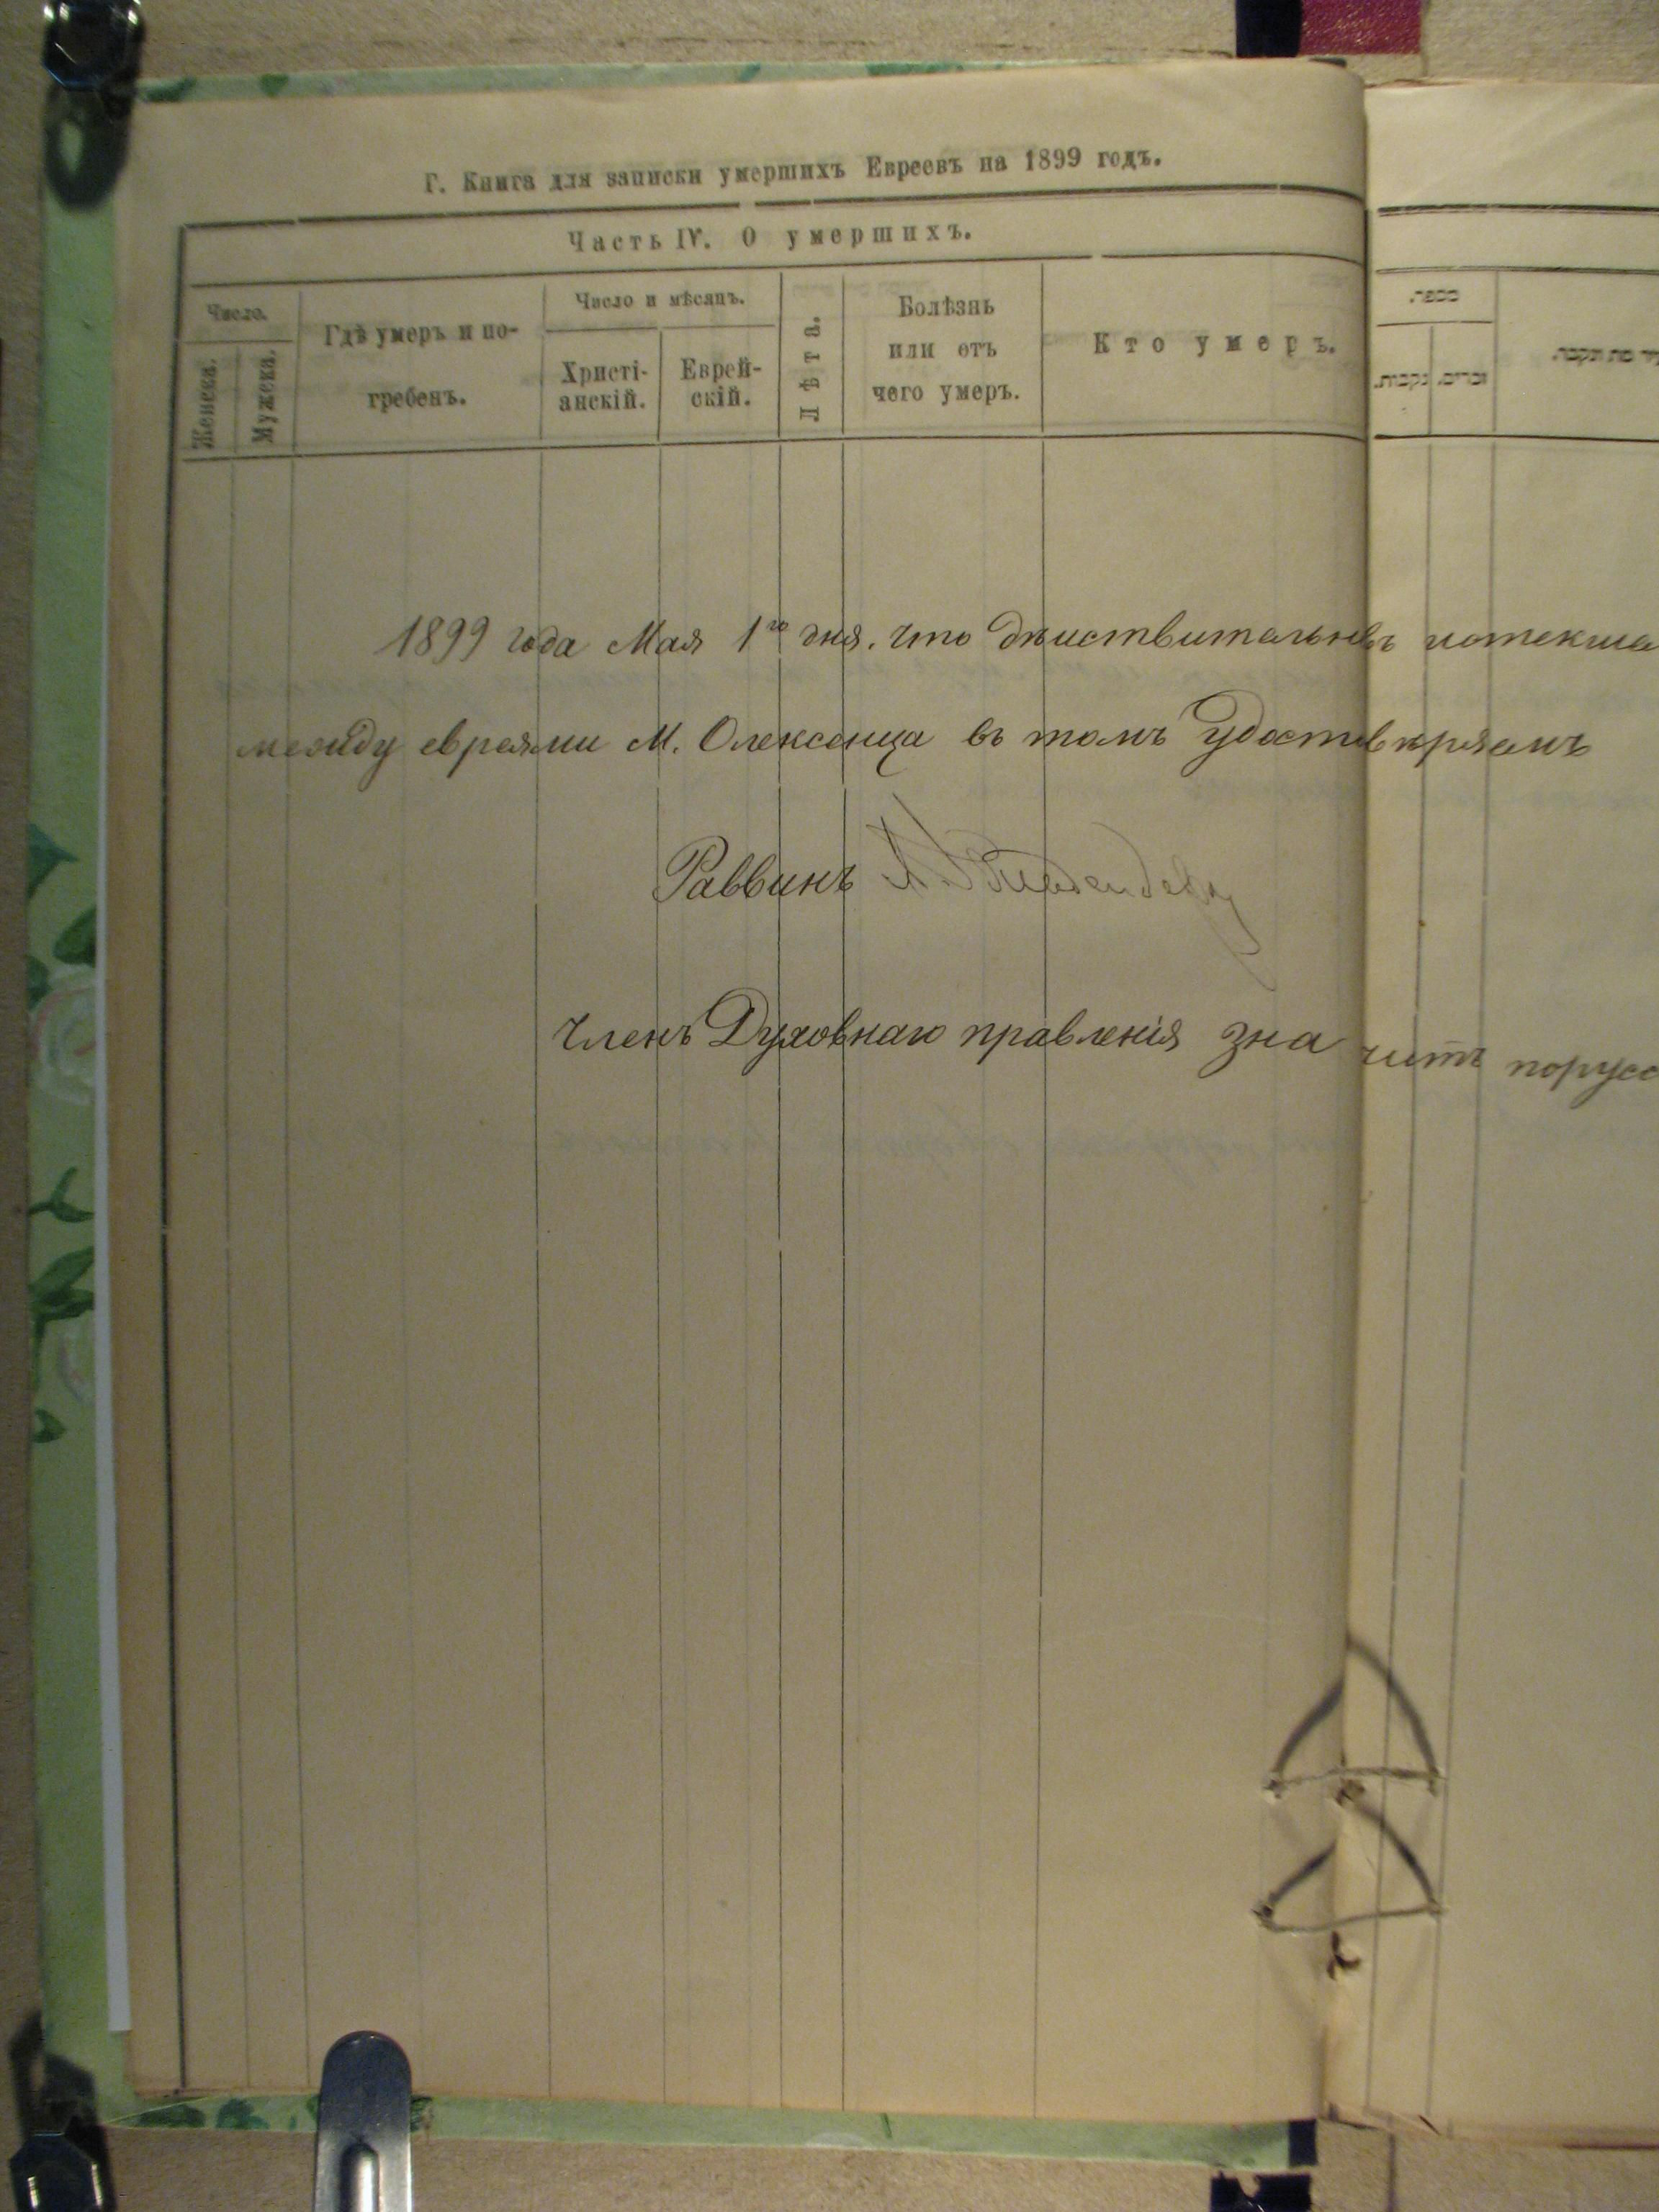 Г. Книга для записки умершихъ Евреевъ на 1899 годъ.
Часть IV. О умершихъ.
Число.
Женска.
Мужска.
Гдѣ умеръ и по-
гребенъ.
Число и мѣсяцъ.
Христі-
анскій.
Еврей-
скій.
Лѣта.
Болѣзнь
или отъ
чего умеръ.
Кто умеръ.
מספר.
נקבות.
זכרים.
מת ונקבר.
1899 года Мая 1го дня. что
между евреями М. Олексенца въ томъ удостовѣряемъ
Раввинъ
Членъ Духовнаго правленія значитъ порусс